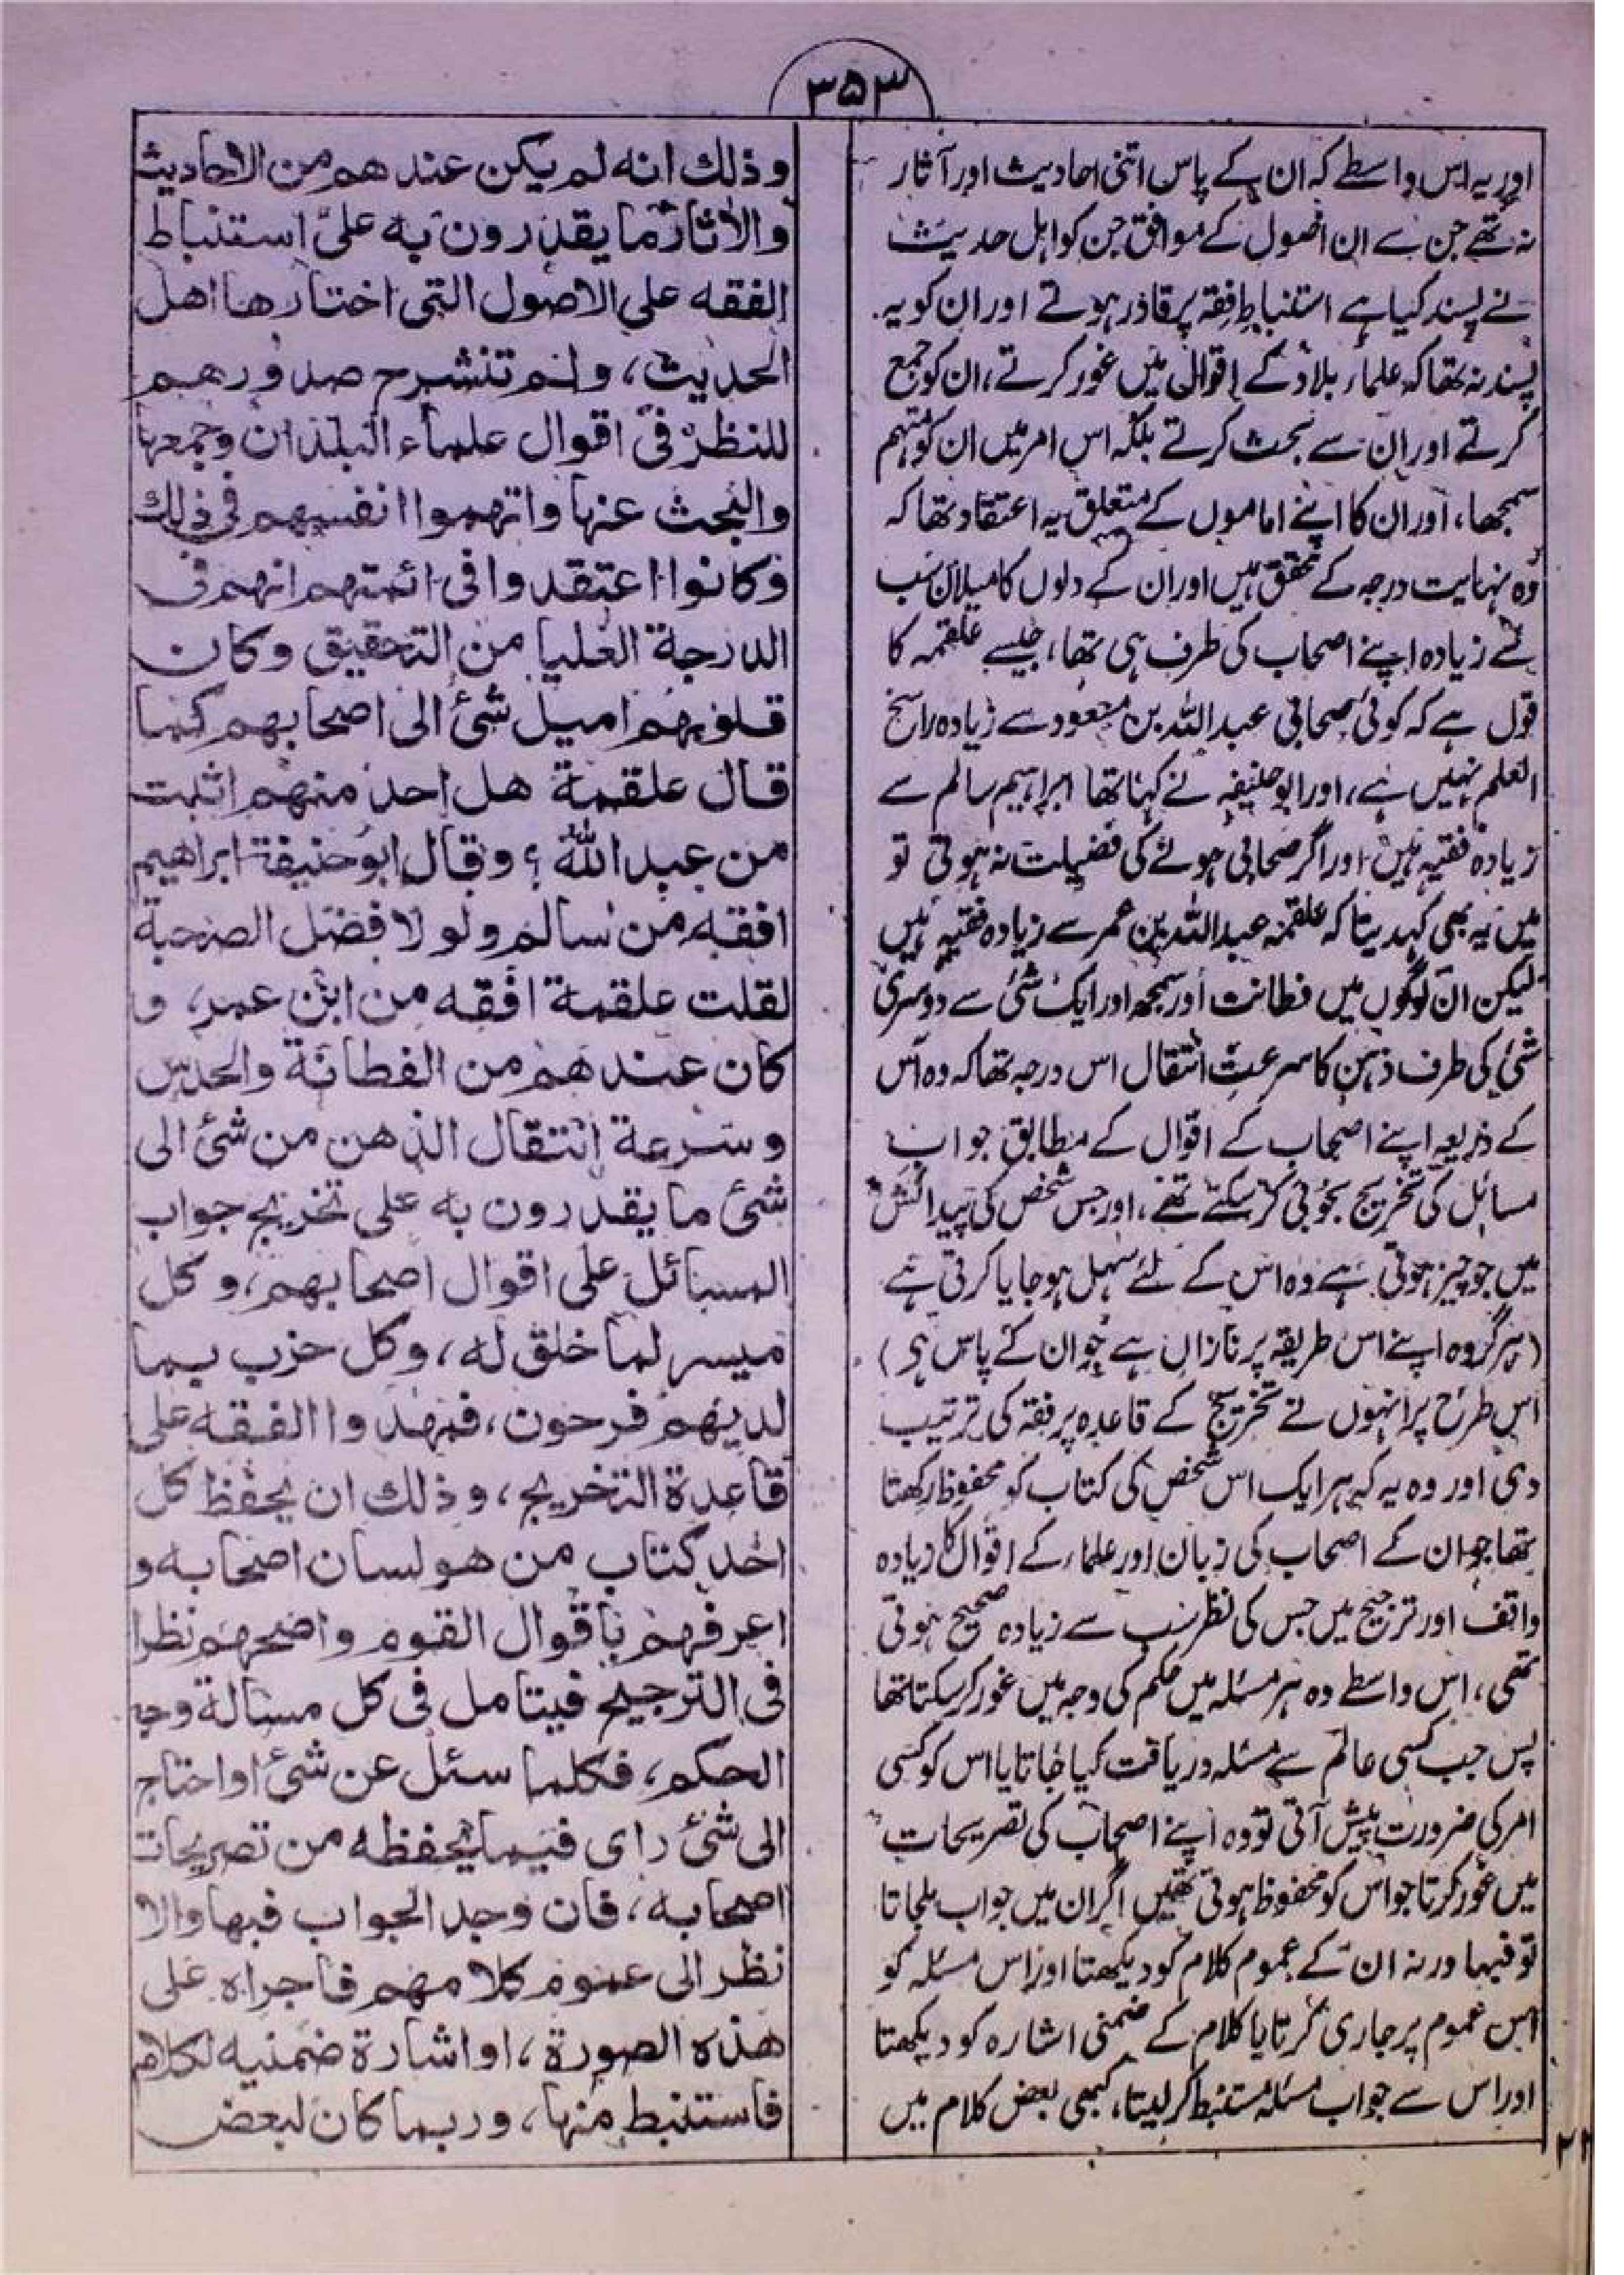 ۳۵۳
اور یہ اس واسطے کہ ان کے پاس اتنی احادیث اور آثار
نہ تھے جن سے ان اصول کے موافق جن کو اہل حدیث
نے پسند کیا ہے استنباطِ فقہ پر قادر ہوتے اور ان کو یہ
پسند نہ تھا کہ علماء بلاد کے اقوال میں غور کرتے، ان کو جمع
کرتے اور ان سے بحث کرتے بلکہ اس امر میں ان کو متہم
سمجھا، اور ان کا اپنے اماموں کے متعلق یہ اعتقاد تھا کہ
وہ نہایت درجہ کے محقق ہیں اور ان کے دلوں کا میلان سب
سے زیادہ اپنے اصحاب کی طرف ہی تھا، جیسے علقمہ کا
قول ہے کہ کوئی صحابی عبداللہ بن مسعود سے زیادہ راسخ
العلم نہیں ہے، اور ابوحنیفہ نے کہا تھا ابراہیم سالم سے
زیادہ فقیہ ہیں اور اگر صحابی ہونے کی فضیلت نہ ہوتی تو
میں یہ بھی کہہ دیتا کہ علقمہ عبداللہ بن عمر سے زیادہ فقیہ ہیں
لیکن ان لوگوں میں فطانت اور سمجھ اور ایک شئ سے دوسری
شئ کی طرف ذہن کا سرعتِ انتقال اس درجہ تھا کہ وہ اس
کے ذریعہ اپنے اصحاب کے اقوال کے مطابق جواب
مسائل کی تخریج بخوبی کر سکتے تھے، اور جس شخص کی پیدائش
میں جو چیز ہوتی ہے وہ اس کے لئے سہل ہو جایا کرتی ہے
(ہر گروہ اپنے اس طریقہ پر نازاں ہے جو ان کے پاس ہی)
اس طرح پر انہوں نے تخریج کے قاعدہ پر فقہ کی ترتیب
دی اور وہ یہ کہ ہر ایک اس شخص کی کتاب کو محفوظ رکھتا
تھا جو ان کے اصحاب کی زبان اور علماء کے اقوال کا زیادہ
واقف اور ترجیح میں جس کی نظر سب سے زیادہ صحیح ہوتی
تھی، اس واسطے وہ ہر مسئلہ میں حکم کی وجہ میں غور کر سکتا تھا
پس جب کسی عالم سے مسئلہ دریافت کیا جاتا یا اس کو کسی
امر کی ضرورت پیش آتی تو وہ اپنے اصحاب کی تصریحات
میں غور کرتا جو اس کو محفوظ ہوتی تھیں اگر ان میں جواب ملجاتا
تو فبہا ورنہ ان کے عموم کلام کو دیکھتا اور اس مسئلہ کو
اس عموم پر جاری کرتا یا کلام کے ضمنی اشارہ کو دیکھتا
اور اس سے جواب مسئلہ مستنبط کر لیتا، کبھی بعض کلام میں
وذلك انه لم يكن عندهم من الاحاديث
والاثار ما يقدرون به على استنباط
الفقه على الاصول التى اختارها اهل
الحديث، ولم تنشرح صدورهم
للنظر فى اقوال علماء البلدان وجمعها
والبحث عنها واتهموا انفسهم فى ذلك
وكانوا اعتقدوا فى ائمتهم انهم فى
الدرجة العليا من التحقيق وكان
قلوبهم اميل شئ الى اصحابهم كما
قال علقمة هل احد منهم اثبت
من عبد الله ؟ وقال ابو حنيفة ابراهيم
افقه من سالم ولولا فضل الصحبة
لقلت علقمة افقه من ابن عمر، و
كان عندهم من الفطانة والحدس
وسرعة انتقال الذهن من شئ الى
شئ ما يقدرون به على تخريج جواب
المسائل على اقوال اصحابهم، وكل
ميسر لما خلق له، وكل حزب بما
لديهم فرحون، فمهدوا الفقه على
قاعدة التخريج، وذلك ان يحفظ كل
احد كتاب من هو لسان اصحابه و
اعرفهم باقوال القوم واصحهم نظرا
فى الترجيح فيتامل فى كل مسالة وجه
الحكم، فكلما سئل عن شئ او احتاج
الى شئ راى فيما يحفظه من تصريحات
اصحابه، فان وجد الجواب فبها والا
نظر الى عموم كلامهم فاجراه على
هذه الصورة، او اشارة ضمنيه لكلام
فاستنبط منها، وربما كان لبعض